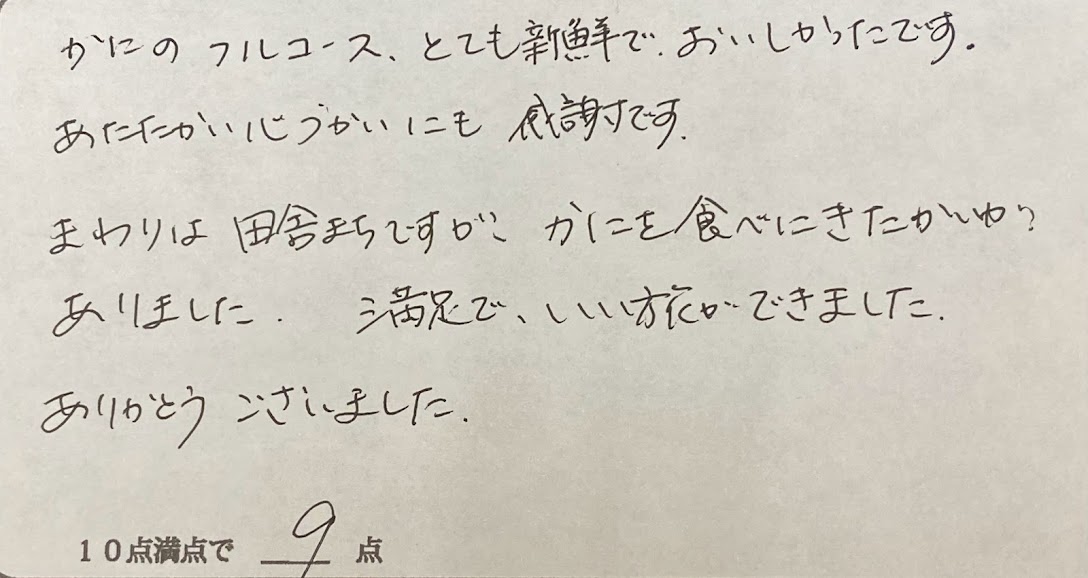 かにのフルコース、とても新鮮で、おいしかったです。
あたたかい心づかいにも感謝です。
まわりは田舎まちですが、かにを食べにきたかいわ
ありました。満足で、いい旅ができました。
ありがとうございました。
10点満点で 9 点